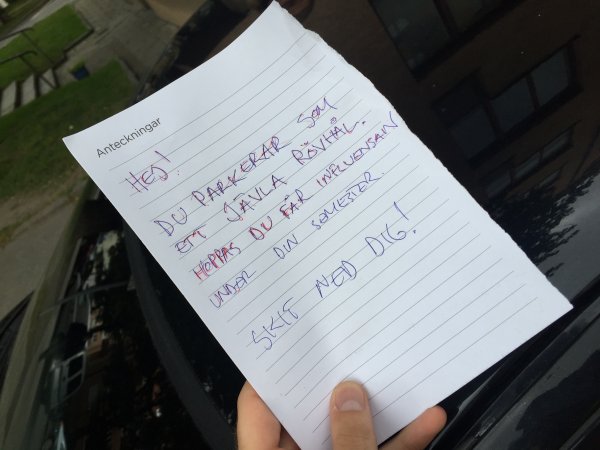 Anteckningar
HEJ!
DU PARKERAR SOM
ETT JÄVLA RÖVHÅL.
HOPPAS DU FÅR INFLUENSAN
UNDER DIN SEMESTER.
SKIT NED DIG!